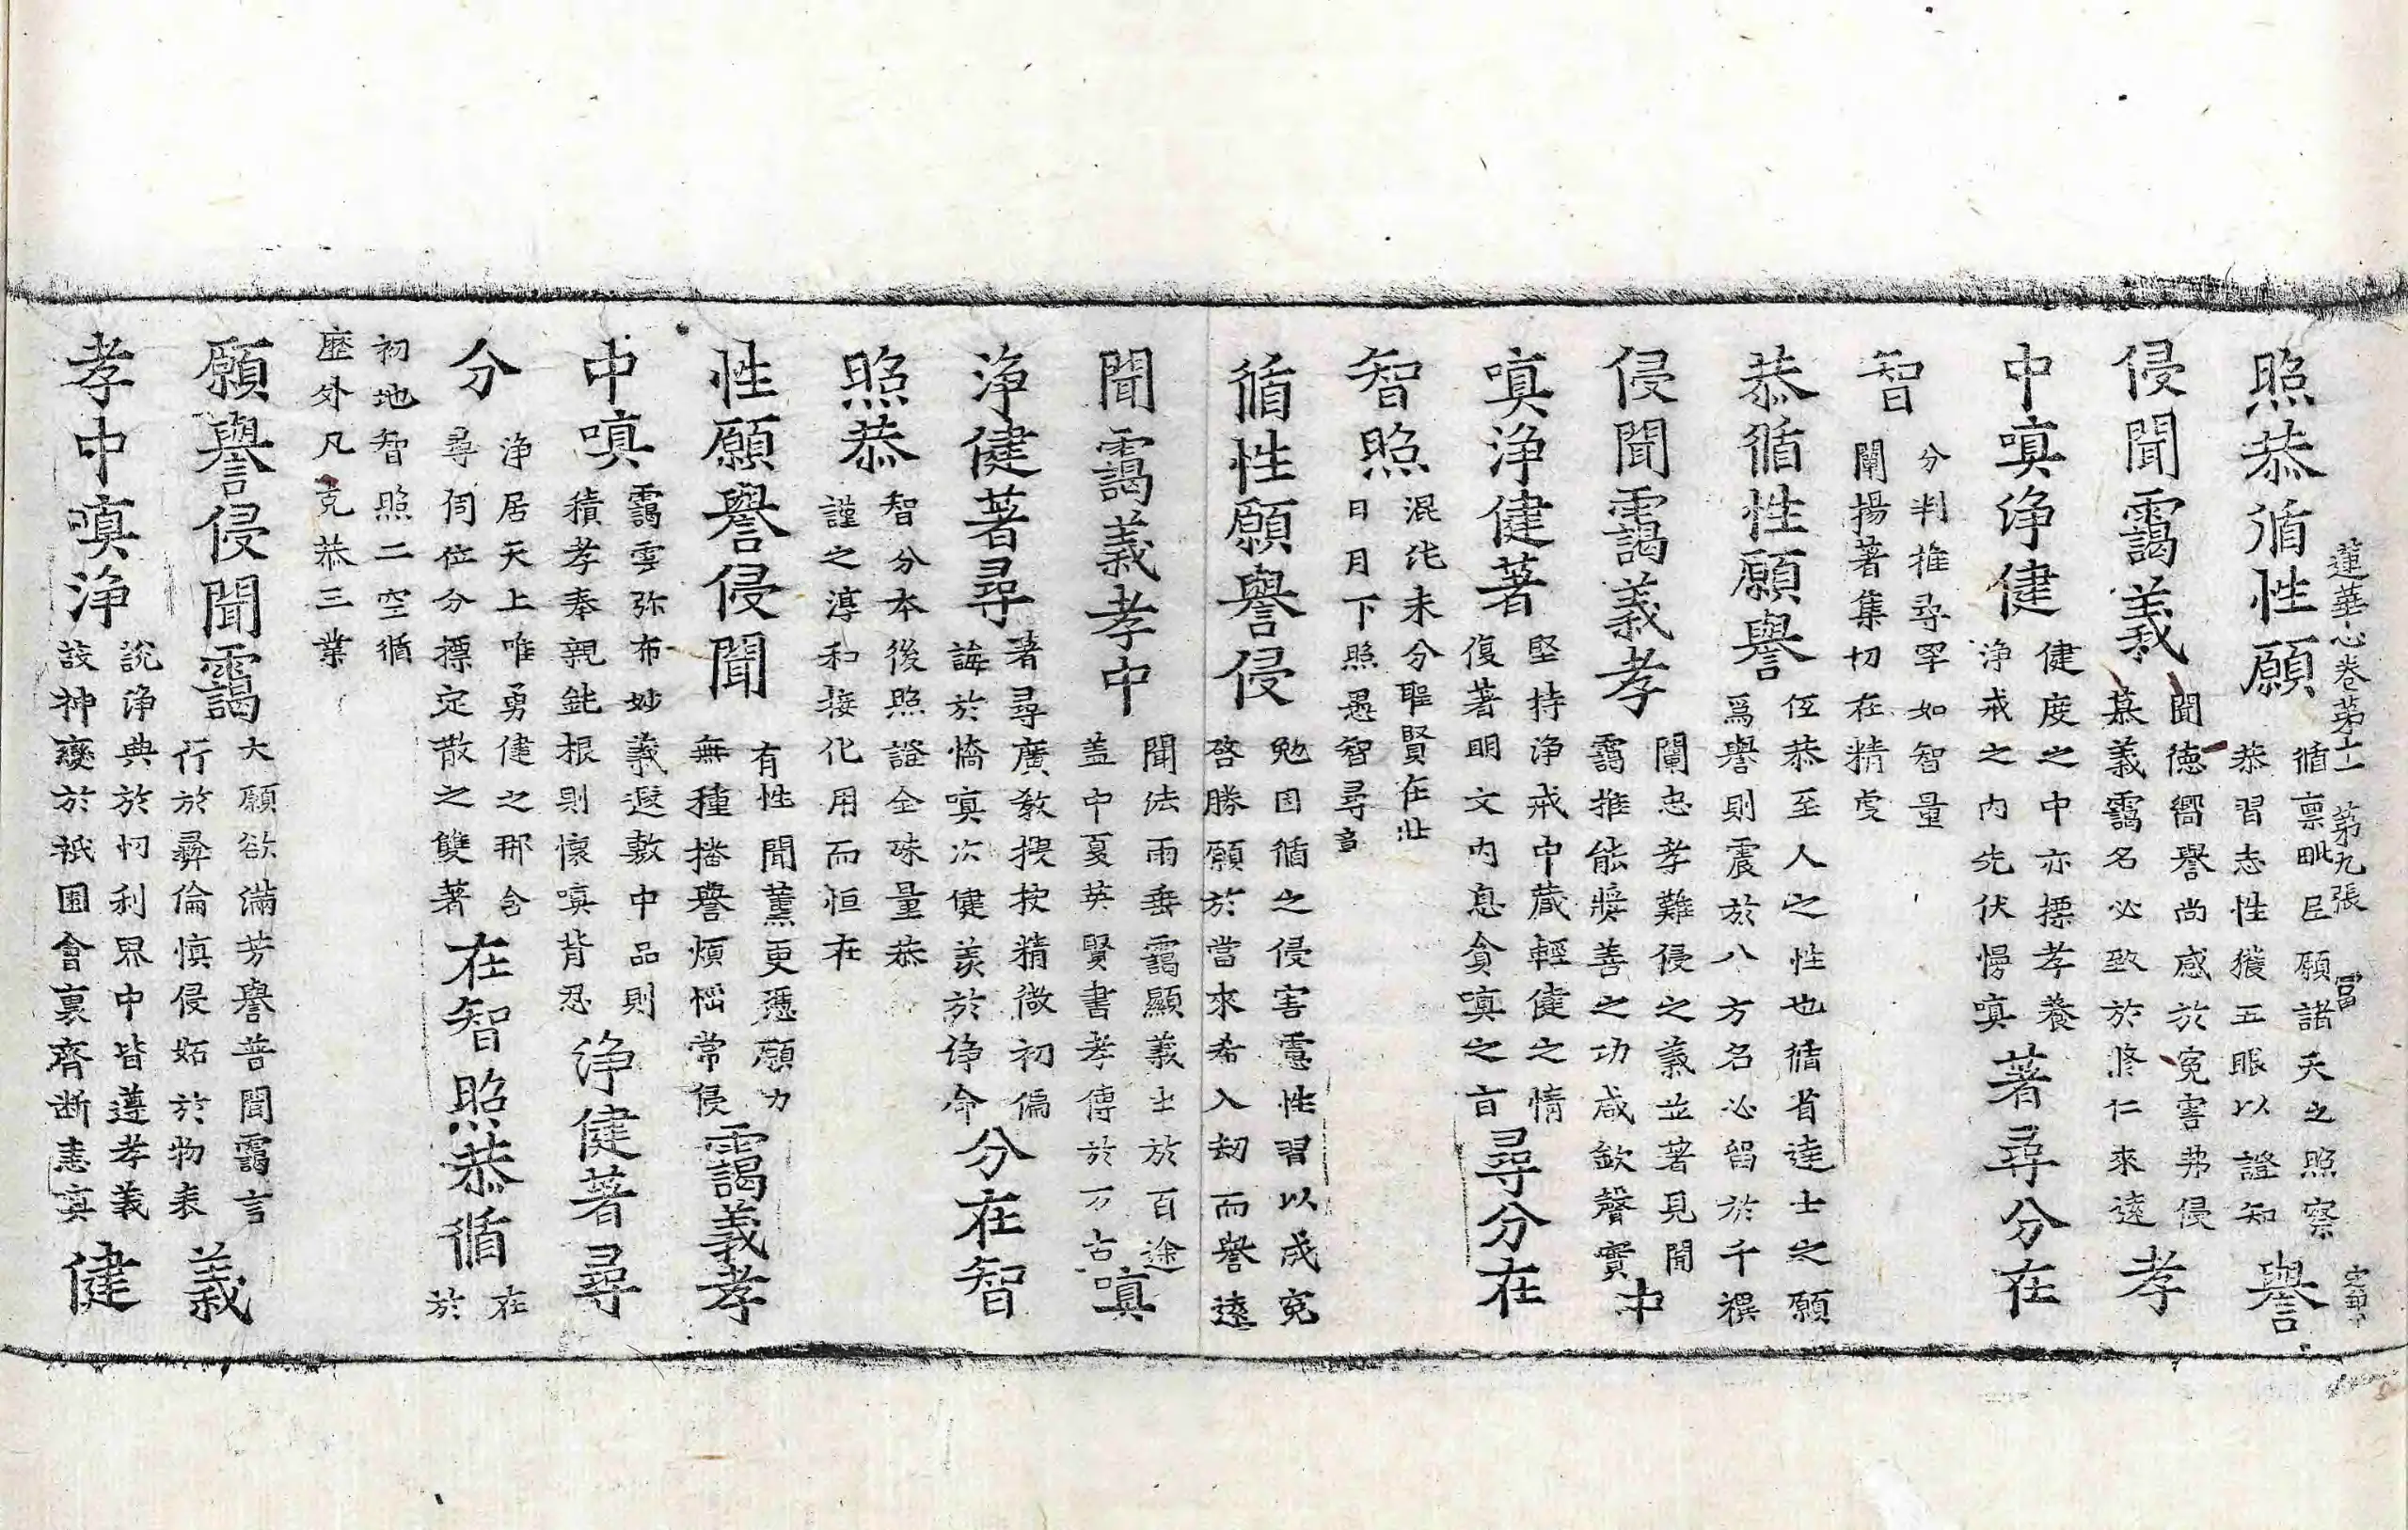 蓮華心卷第十一 第九張 冨
照恭循性願
循禀毗尼願諸天之照察
恭習志性獲五眼以證知
譽
侵聞靄義
聞德嚮譽尚感於寃害弗侵
慕義靄名必致於脩仁來遠
孝
中嗔淨健
健度之中亦摽孝養
淨戒之內先伏慢嗔
著尋分在
智
分判推尋罕如智量
闡揚著集切在精虔
恭循性願譽
伍恭至人之性也循省達士之願
爲譽則震於八方名必留於千禩
侵聞靄義孝
闡忠孝難侵之義並著見聞
靄推能獎善之功咸欽聲實
中
嗔淨健著
堅持淨戒中藏輕健之情
復著明文內息貪嗔之言
尋分在
智照
混沌未分聖賢在
日月下照愚智尋
循性願譽侵
勉因循之侵害憲性習以成寃
啓勝願於當來希入劫而譽遠
聞靄義孝中
聞法雨垂靄顯義士於百途
盖中夏英賢書孝傳於万古
嗔
淨健著尋
著尋廣教揆按精微初偏
誨於憍嗔次健羨於淨命
分在智
照恭
智分本後照證全殊量恭
謹之淳和接化用而恒在
性願譽侵聞
有性聞薰更憑願力
無種播譽煩惱常侵
靄義孝
中嗔
靄雲弥布妙義遐敷中品則
積孝奉親鈍根則懷嗔背忍
淨健著尋
分
淨居天上唯勇健之那含
尋伺位分摽定散之雙著
在智照恭循
在
於
初地智照二空循
歷外凡克恭三業
願譽侵聞靄
大願欲滿芳譽普聞靄言
行於彜倫慎侵妬於物表
義
孝中嗔淨
說淨典於忉利界中皆遵孝義
談神變於祇園會裏齊断恚嗔
健